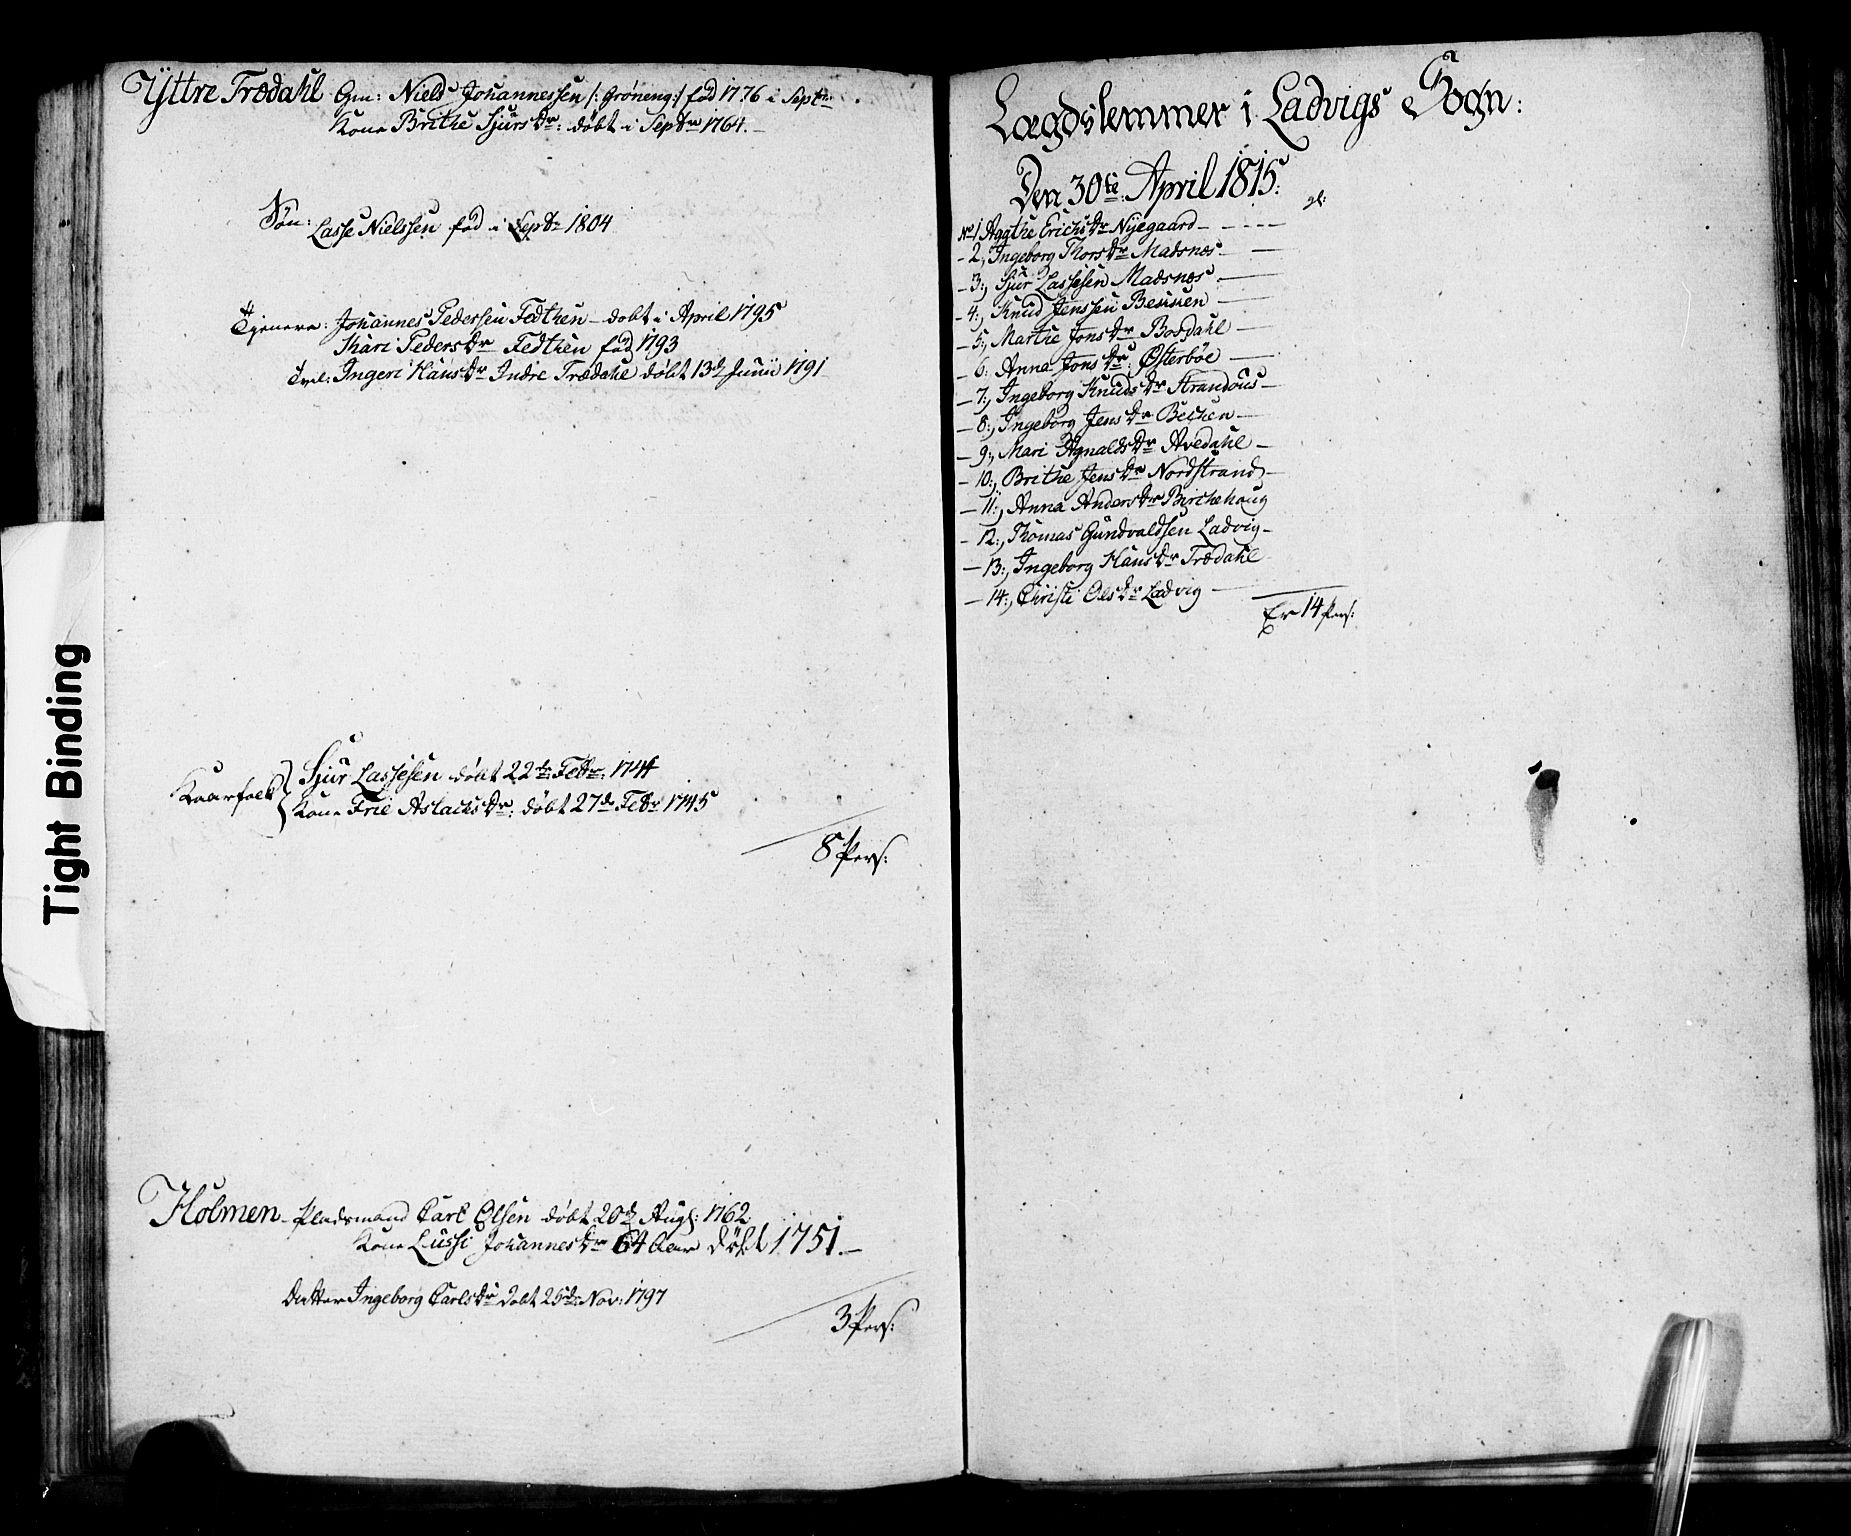 Yttre Trædahl Gm: Niels Johannessen /: Grøneng :/ fød 1776 i Septr
Kone Brithe Sjurs Dr: døbt i Septr 1764.
Søn: Lasse Nielssen fød i Septr 1804
Tjenere: Johannes Pedersen Fedthen døbt i April 1795
Mari Peders Dr Fedthen fød 1793
Ingeri Hans Dr Indre Trædahl døbt 13d Junii 1791
Kaarfolk { Sjur Lassesen døbt 22de Febr: 1744
Kone Frie Aslachs Dr: døbt 27de Febr 1745
8 Pers:
Holmen - Pladsmand Carl Olsen døbt 20d Aug: 1762
Kone Lussi Johannes Dr 64 Aar døbt 1751.
Datter Ingeborg Carls Dr døbt 26de Nov: 1797
3 Pers:
Tight Binding
Lægdslemmer i Ladvigs Sogn:
Den 30te April 1815:
No 1 Agthe Erichs Dr Nyegaard
- 2, Ingeborg Thors Dr Madsnæs
- 3:, Sjur Lassesen Madsnæs
- 4:, Knud Jenssen
- 5:, Marthe Jons Dr Bordahl
- 6:, Anna Jons Dr: Østerbøe
- 7:, Ingeborg Knuds Dr Strandous
- 8:, Ingeborg Jens Dr Bechen
- 9:, Mari Agnalds Dr Avedahl
- 10:, Brithe Jens Dr Nordstrand
- 11:, Anna Anders Dr Birchehoug
- 12:, Thomas Gundvaldsen Ladvig
- 13:, Ingeborg Hans Dr Trædahl
- 14:, Christi Ols Dr Ladvig
Er 14 Pers: